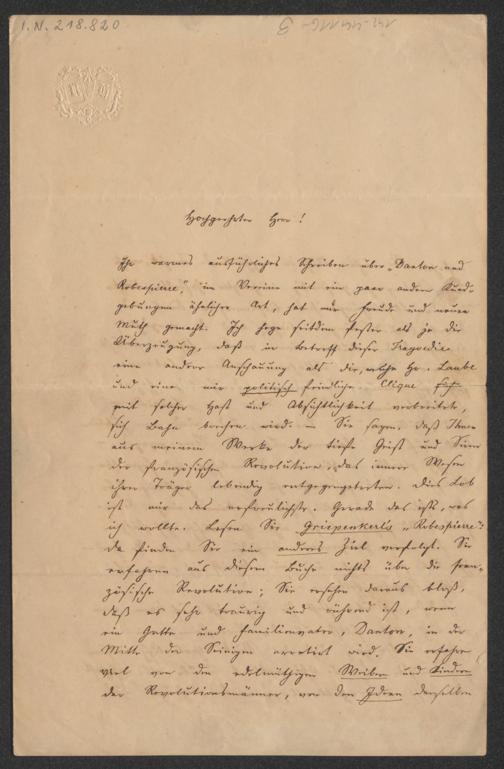 I.N. 218.820
Hochgeehrter Herr!
Ihr warmes ausführliches Schreiben über „Danton und
Robespierre", im Vereine mit ein paar andern Kund-
gebungen ähnlicher Art, hat mir Freude und neuen
Muth gemacht. Ich hege seitdem fester als je die
Überzeugung, daß in betreff dieser Tragoedie
eine andere Anschauung als die, welche Hr. Laube
und eine mir politisch feindliche Clique
mit solcher Hast und Absichtlichkeit verbreitete,
sich Bahn brechen wird. – Sie sagen, daß Ihnen
aus meinem Werke der tiefste Geist und Sinn
der französischen Revolution, das innere Wesen
ihrer Träger lebendig entgegengetreten. Dies Lob
ist mir das erfreulichste. Gerade das ist's, was
ich wollte. Lesen Sie Griepenkerls „Robespierre":
da finden Sie ein anderes Ziel verfolgt. Sie
erfahren aus diesem Buche nichts über die fran-
zösische Revolution; Sie ersehen daraus bloß,
daß es sehr traurig und rührend ist, wenn
ein Gatte und Familienvater, Danton, in der
Mitte der Seinigen arretirt wird. Sie erfahren
viel von den edelmüthigen Weibern und Kindern
der Revolutionsmänner, von den Ideen derselben